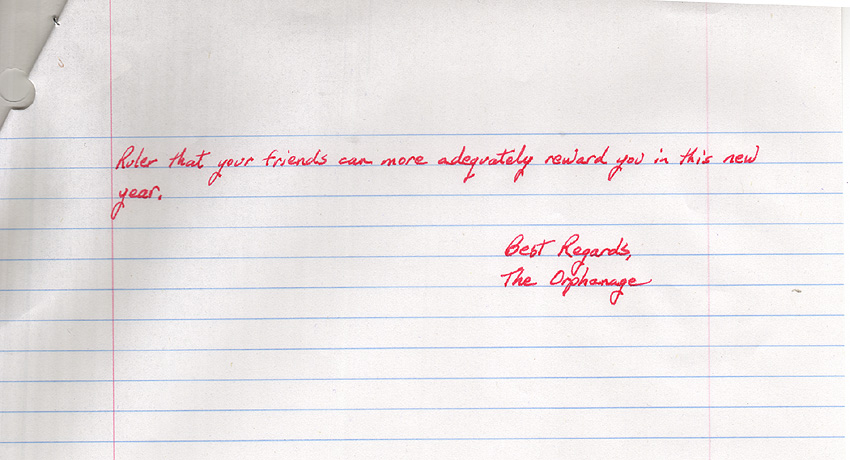 Ruler that your friends can more adequately reward you in this new
year.
Best Regards,
The Orphanage